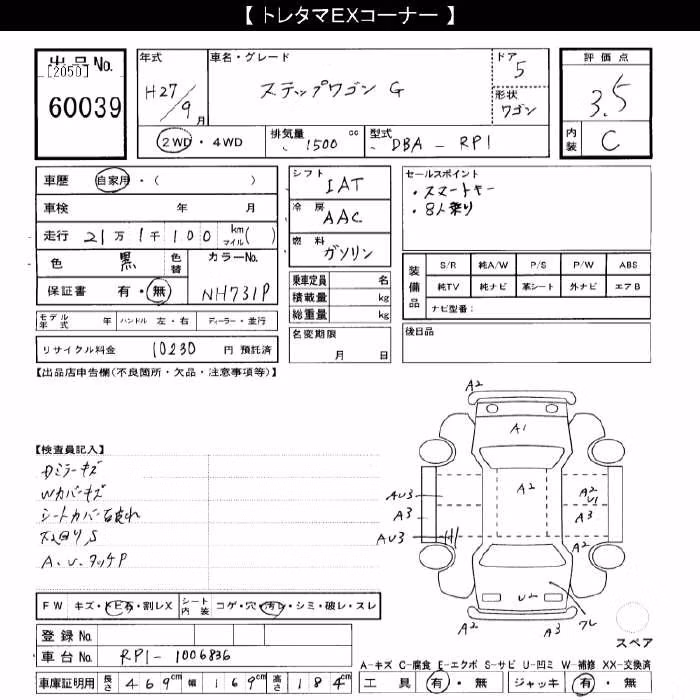 【 トレタマEXコーナー 】
出品No.
[2050]
60039
年式
H27/9月
車名・グレード
ステップワゴン G
ドア
5
形状
ワゴン
評価点
3.5
内装
C
2WD・4WD
排気量
1500 cc
型式
DBA - RP1
車歴
自家用・( )
車検 年 月
走行 21万1千100 km マイル( )
色
黒
色替
カラーNo.
NH731P
保証書 有・無
モデル年式 年
ハンドル 左・右
ディーラー・並行
リサイクル料金 10230 円 預託済
シフト
IAT
冷房
AAC
燃料
ガソリン
乗車定員 名
積載量 kg
総重量 kg
名変期限
月 日
セールスポイント
・スマートキー
・8人乗り
装備品
S/R 純A/W P/S P/W ABS
純TV 純ナビ 革シート 外ナビ エアB
ナビ型番:
後日品
【出品店申告欄(不良箇所・欠品・注意事項等)】
【検査員記入】
Dミラーキズ
Wカバーキズ
シートカバー破れ
A.U.タッチP
A2
A1
A2
A2
U1
AU3
A3
A3
AU3
A2
U2
A2
A3
フレ
スペア
FW キズ・トビ石・割レX
シート内装 コゲ・穴・汚レ・シミ・破レ・スレ
登録No.
車台No. RP1-1006836
車庫証明用 長さ 469cm 幅 169cm 高さ 184cm
A-キズ C-腐食 E-エクボ S-サビ U-凹ミ W-補修 XX-交換済
工具 有・無 ジャッキ 有・無